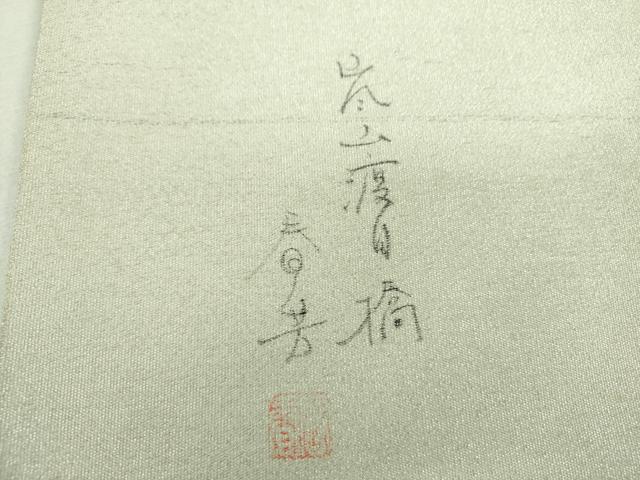 嵐山渡月橋
春芳